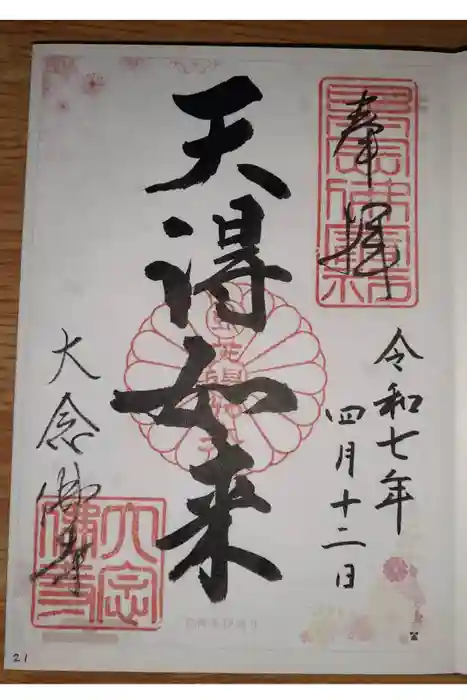 奉拝
令和七年
四月十二日
天得如来
大念佛寺
大念
佛寺
21